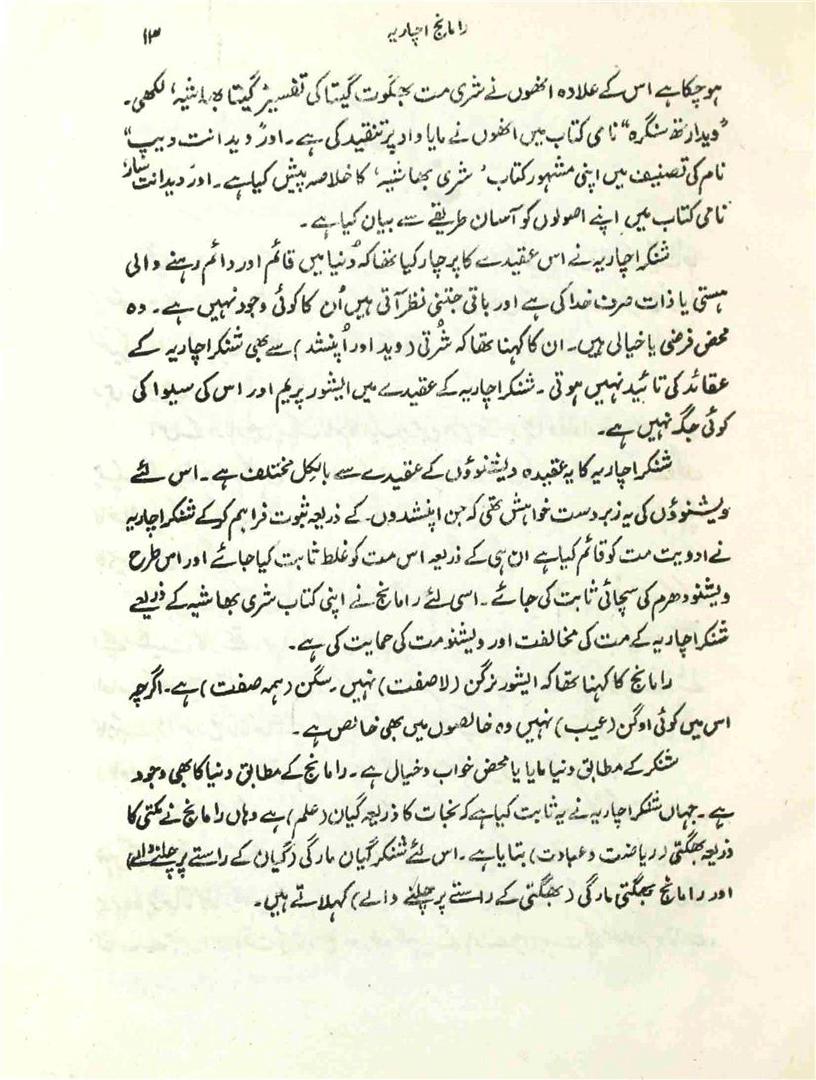 رامانج اچاریہ
۱۳
ہوچکا ہے اس کے علادہ انھوں نے شری مت بھگوت گیتا کی تفسیر 'گیتا بھاشیہ' لکھی۔
"ویدارتھ سنگرہ" نامی کتاب میں انھوں نے مایا واد پر تنقید کی ہے۔ اور "ویدانت دیپ"
نام کی تصنیف میں اپنی مشہور کتاب 'شری بھاشیہ' کا خلاصہ پیش کیا ہے۔ اور "ویدانت سار"
نامی کتاب میں اپنے اصولوں کو آسان طریقے سے بیان کیا ہے۔
شنکراچاریہ نے اس عقیدے کا پرچار کیا تھا کہ دُنیا میں قائم اور دائم رہنے والی
ہستی یا ذات صرف خدا کی ہے اور باقی جتنی نظر آتی ہیں اُن کا کوئی وجود نہیں ہے۔ وہ
محض فرضی یا خیالی ہیں۔ ان کا کہنا تھا کہ شُرتی (وید اور اُپنشد) سے بھی شنکراچاریہ کے
عقائد کی تائید نہیں ہوتی۔ شنکراچاریہ کے عقیدے میں ایشور پریم اور اس کی سیوا کی
کوئی جگہ نہیں ہے۔
شنکراچاریہ کا یہ عقیدہ ویشنوؤں کے عقیدے سے بالکل مختلف ہے۔ اس لئے
ویشنوؤں کی یہ زبردست خواہش تھی کہ جن اپنشدوں۔ کے ذریعہ ثبوت فراہم کرکے شنکراچاریہ
نے ادویت مت کو قائم کیا ہے ان ہی کے ذریعہ اس مت کو غلط ثابت کیا جائے اور اس طرح
ویشنو دھرم کی سچائی ثابت کی جائے۔ اسی لئے رامانج نے اپنی کتاب شری بھاشیہ کے ذریعے
شنکراچاریہ کے مت کی مخالفت اور ویشنو مت کی حمایت کی ہے۔
رامانج کا کہنا تھا کہ ایشور نرگن (لاصفت) نہیں۔ سگن (ہمہ صفت) ہے۔ اگرچہ
اس میں کوئی اوگن (عیب) نہیں وہ خالصوں میں بھی خالص ہے۔
شنکر کے مطابق دنیا مایا یا محض خواب وخیال ہے۔ رامانج کے مطابق دنیا کا بھی وجود
ہے۔ جہاں شنکراچاریہ نے یہ ثابت کیا ہے کہ نجات کا ذریعہ گیان (علم) ہے وہاں رامانج نے مکتی کا
ذریعہ بھگتی (ریاضت وعبادت) بتایا ہے۔ اس لئے شنکر گیان مارگی (گیان کے راستے پر چلنے والے)
اور رامانج بھگتی مارگی (بھگتی کے راستے پر چلنے والے) کہلاتے ہیں۔